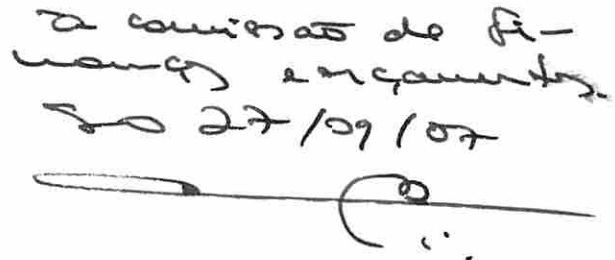 À comissão de Fi-
nanças e orçamentos.
27/09/07